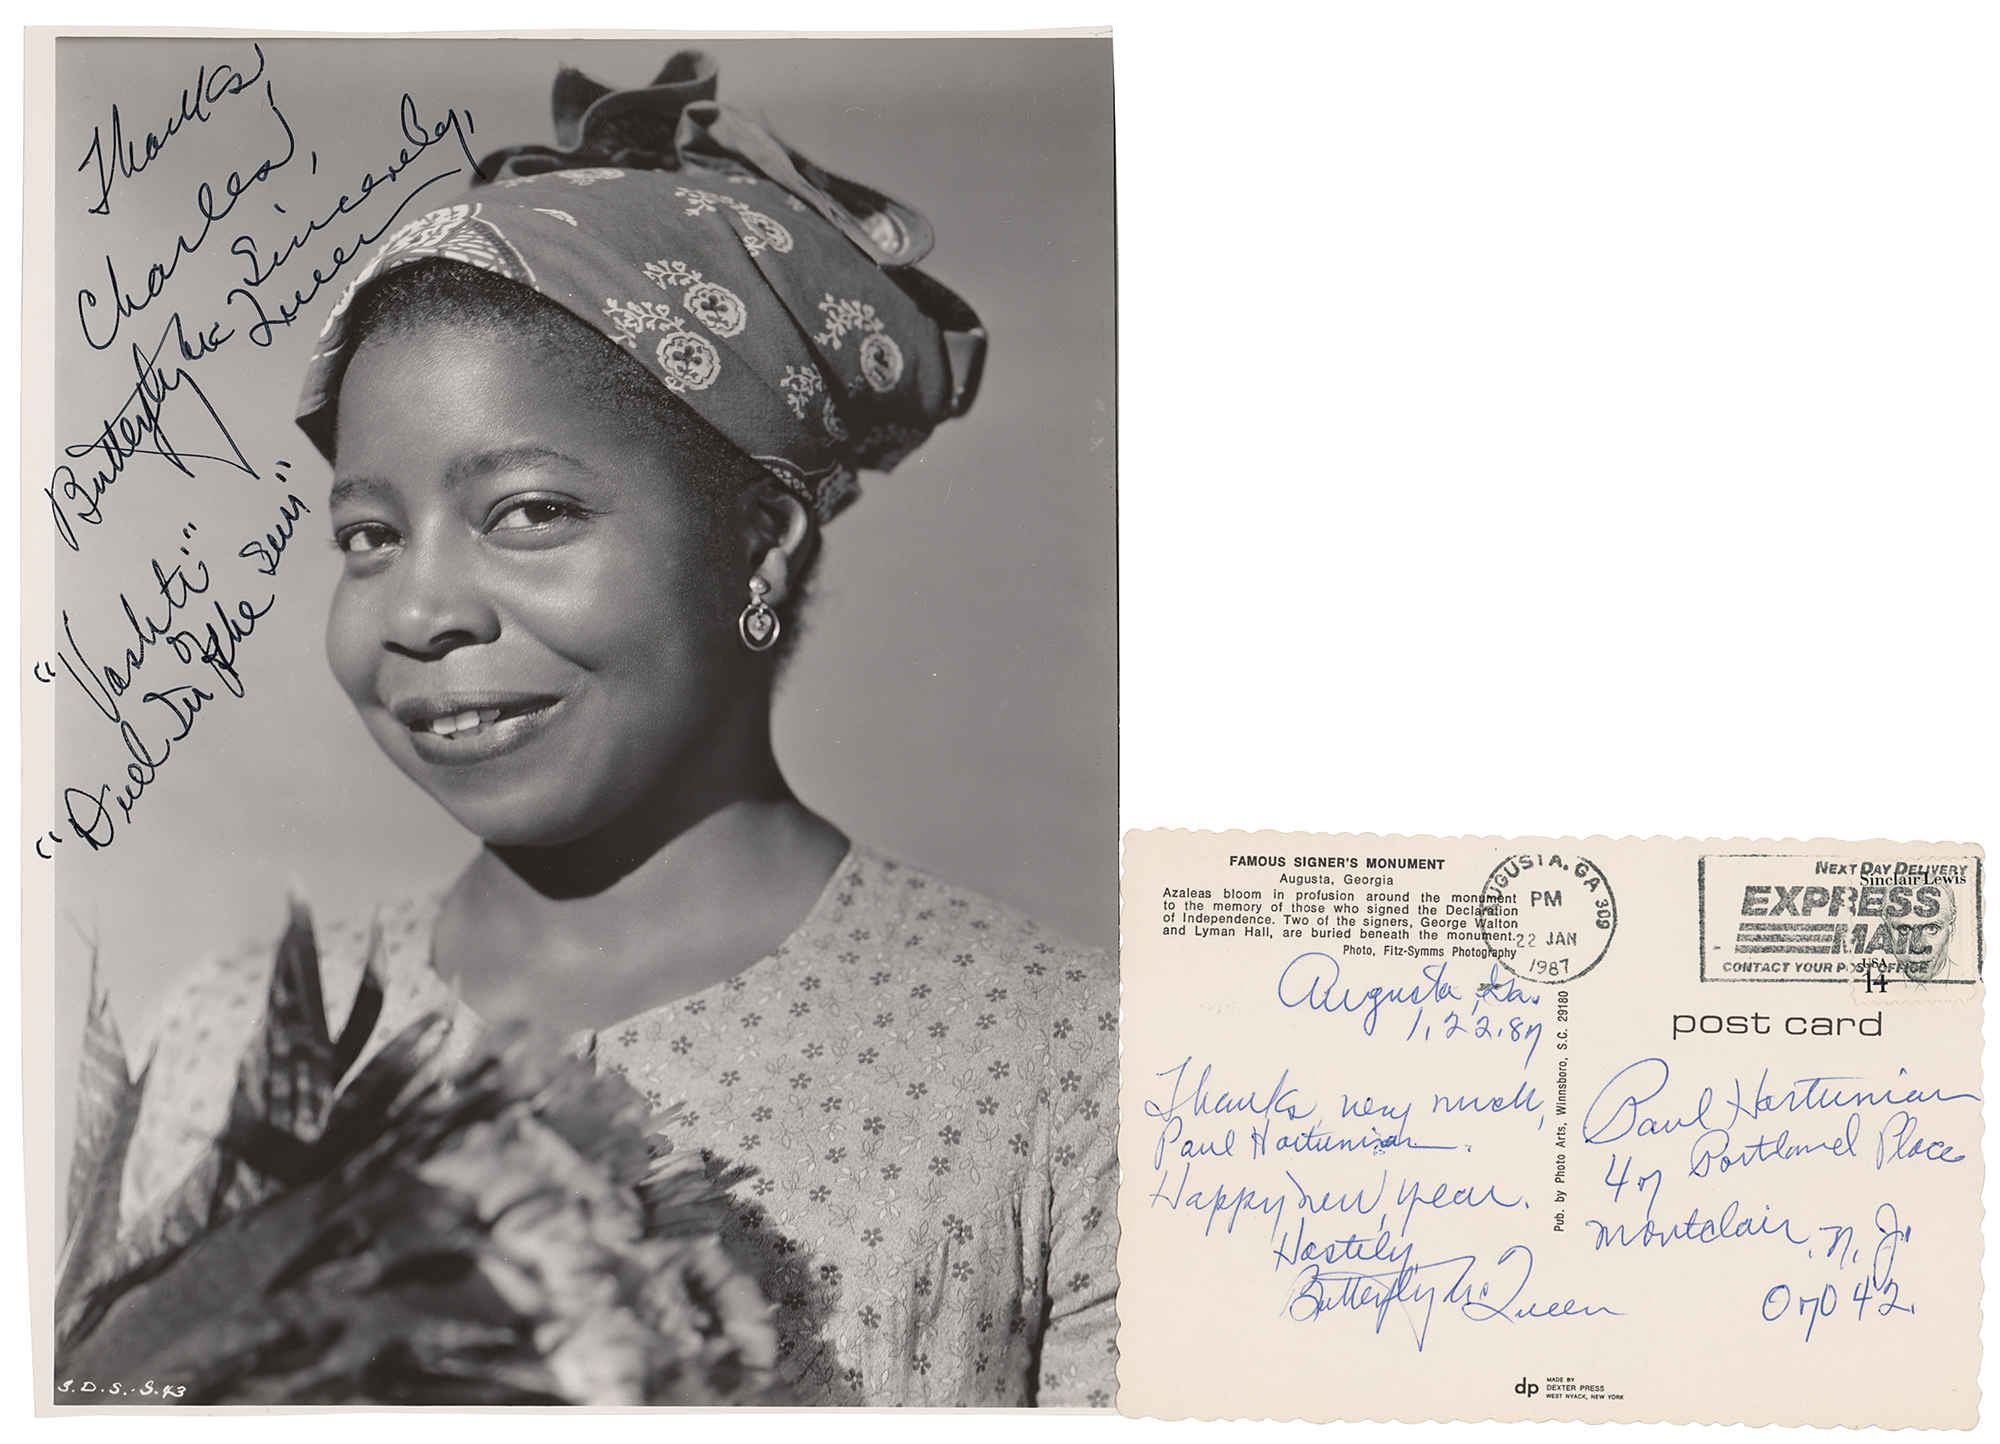 Thanks,
Charles,
Sincerely,
Butterfly Mc Queen
"Vashti"
of
"Duel In the Sun"
S.D.S.-S.43
FAMOUS SIGNER'S MONUMENT
Augusta, Georgia
Azaleas bloom in profusion around the monument
to the memory of those who signed the Declaration
of Independence. Two of the signers, George Walton
and Lyman Hall, are buried beneath the monument.
Photo, Fitz-Symms Photography
AUGUSTA, GA 309
PM
22 JAN
1987
NEXT DAY DELIVERY
EXPRESS
MAIL
CONTACT YOUR POST OFFICE
Sinclair Lewis
USA
14
post card
Augusta, Ga.
1.22.87
Thanks, very much,
Paul Hartunian.
Happy new year.
Hastily,
Butterfly Mc Queen
Pub. by Photo Arts, Winnsboro, S.C. 29180
Paul Hartunian
47 Portland Place
Montclair, N.J.
07042.
dp
MADE BY
DEXTER PRESS
WEST NYACK, NEW YORK